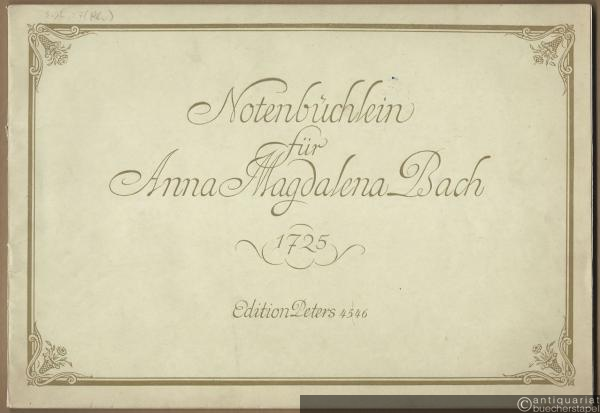 Notenbüchlein
für
Anna Magdalena Bach
1725
Edition Peters 4546
© antiquariat
buecherstapel